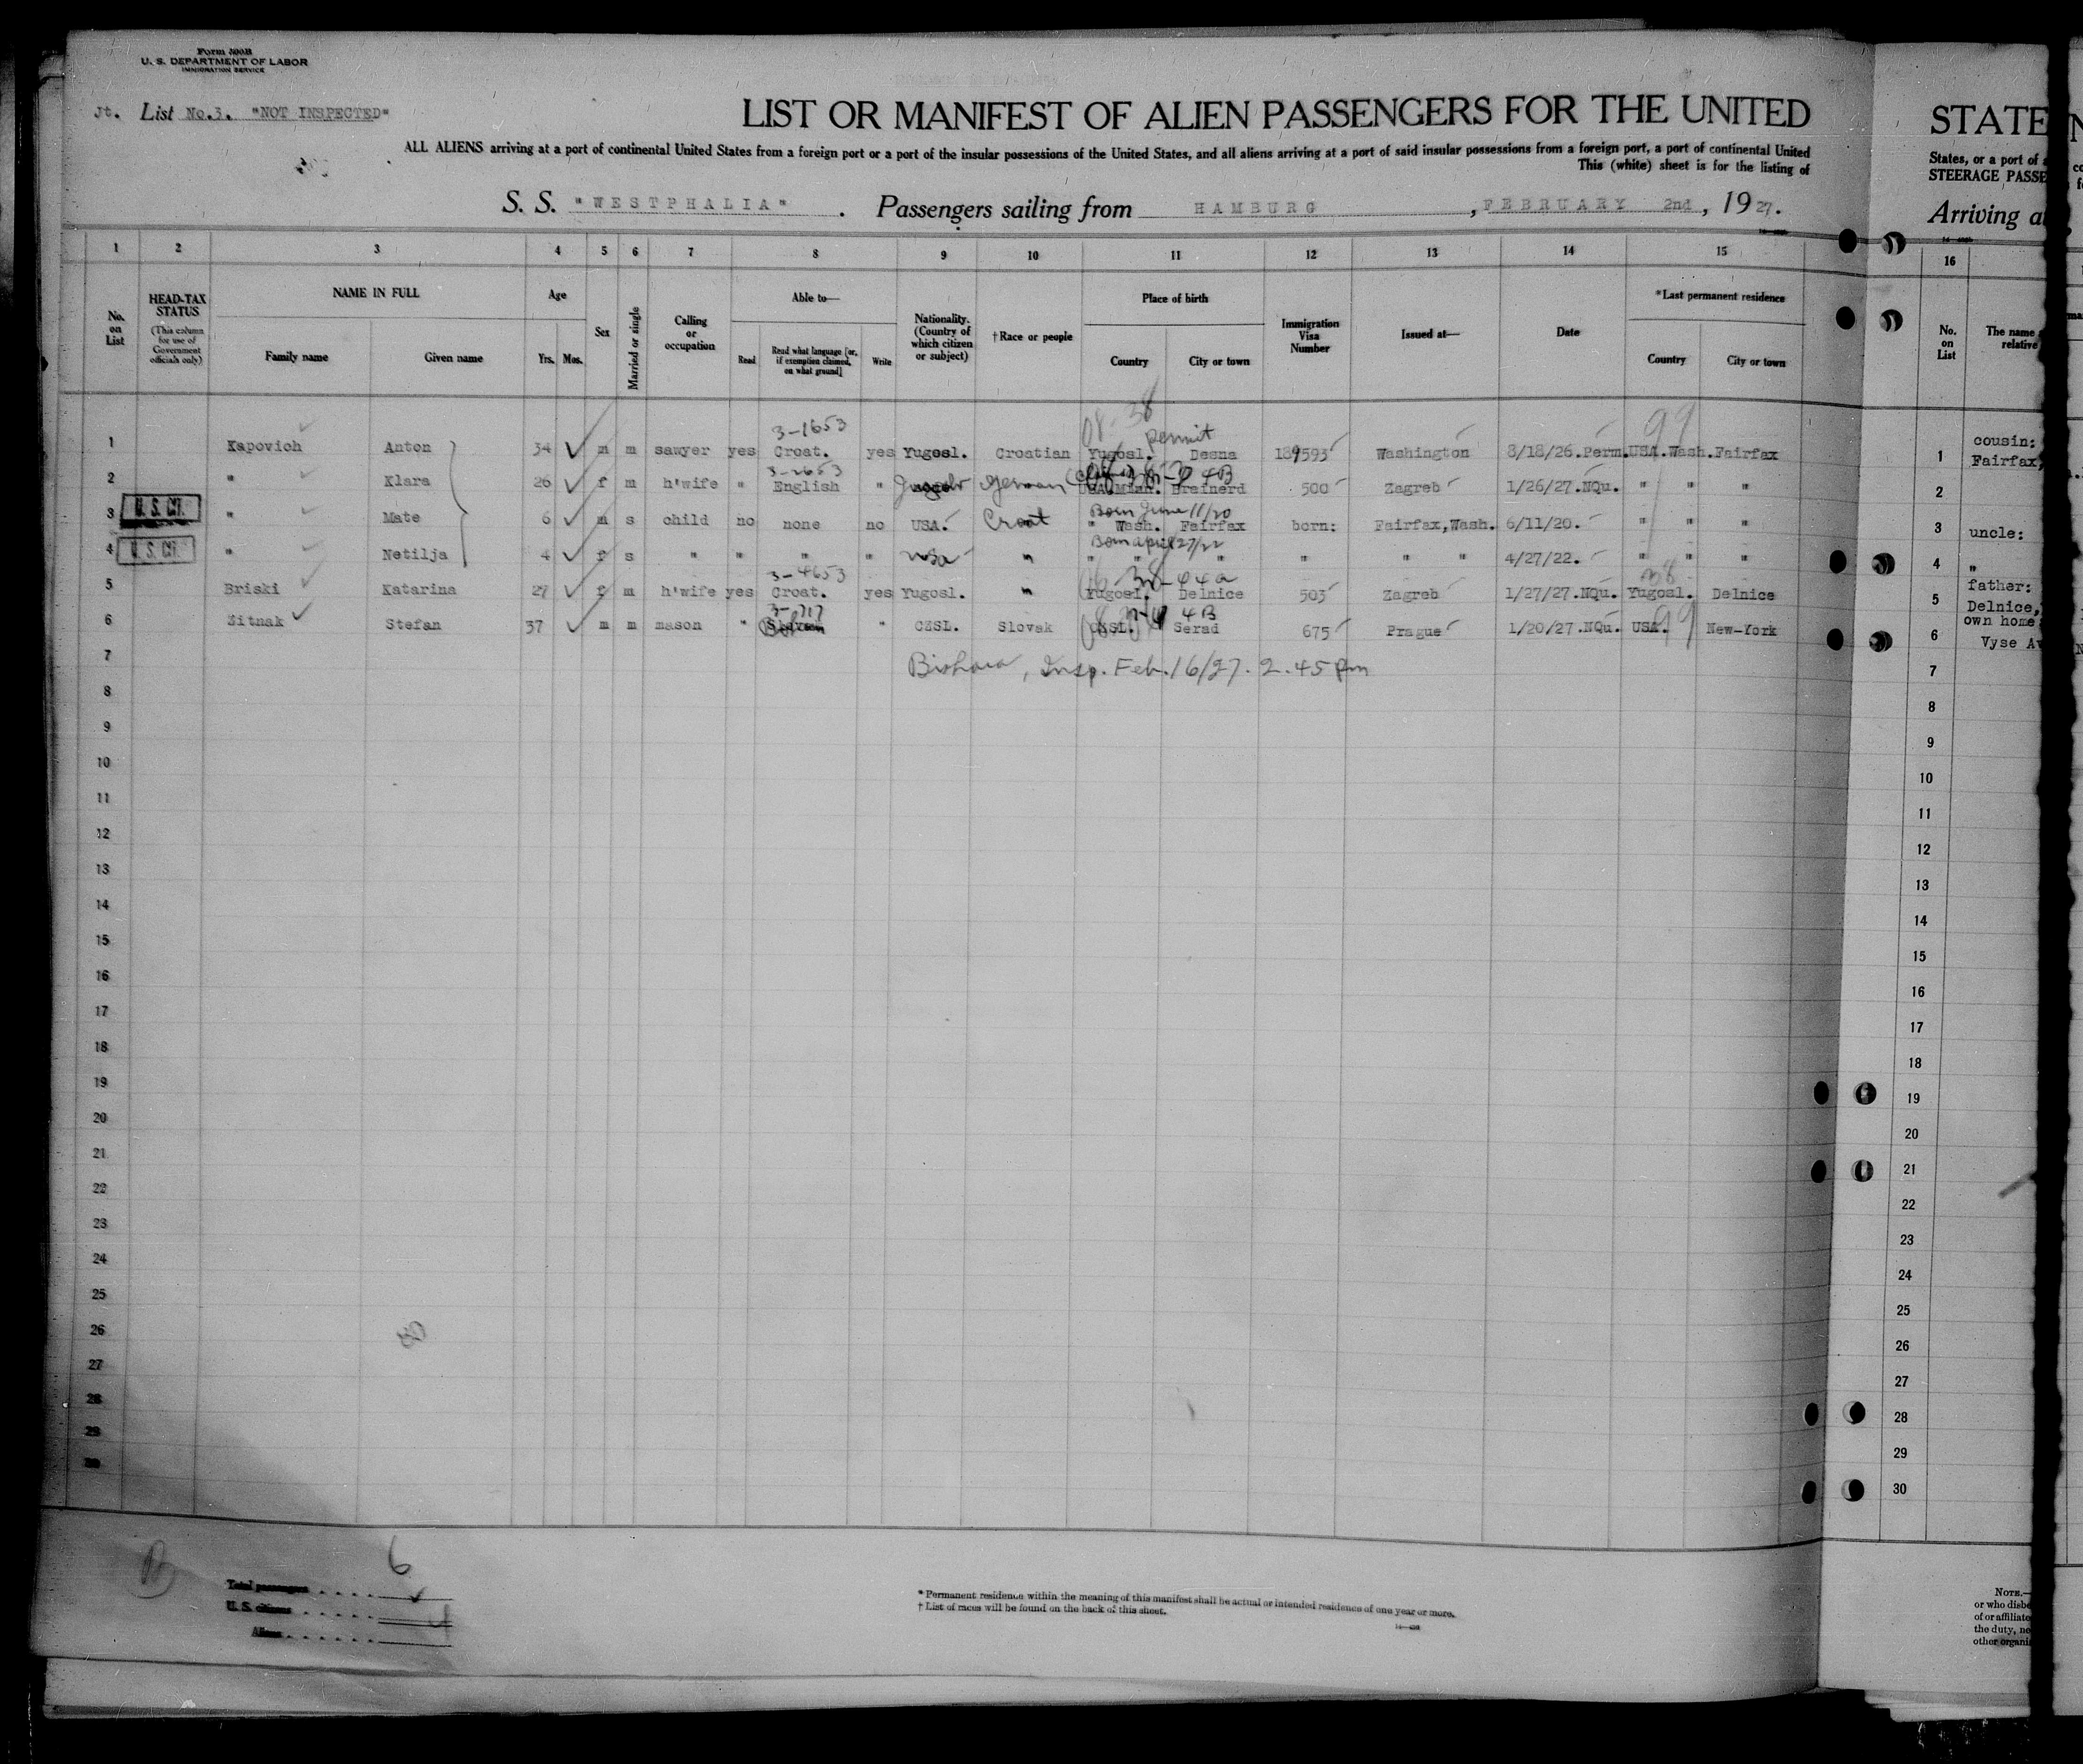 Form 500B
U. S. DEPARTMENT OF LABOR
IMMIGRATION SERVICE
Jt. List No.3. "NOT INSPECTED"
LIST OR MANIFEST OF ALIEN PASSENGERS FOR THE UNITED
ALL ALIENS arriving at a port of continental United States from a foreign port or a port of the insular possessions of the United States, and all aliens arriving at a port of said insular possessions from a foreign port, a port of continental United
This (white) sheet is for the listing of
S. S. "WESTPHALIA" . Passengers sailing from HAMBURG , FEBRUARY 2nd , 1927.
1 2 3 4 5 6 7 8 9 10 11 12 13 14 15
No. on List
HEAD-TAX STATUS
(This column for use of Government officials only)
NAME IN FULL
Family name Given name
Age
Yrs. Mos.
Sex
Married or single
Calling or occupation
Able to—
Read
Read what language [or, if exemption claimed, on what ground]
Write
Nationality. (Country of which citizen or subject)
†Race or people
Place of birth
Country City or town
Immigration Visa Number
Issued at—
Date
*Last permanent residence
Country City or town
08-38 99
3-1653 permit
1 Kapovich Anton 34 m m sawyer yes Croat. yes Yugosl. Croatian Yugosl. Desna 189593 Washington 8/18/26.Perm. USA.Wash.Fairfax
3-2653 4B
2 " Klara 26 f m h'wife " English " German USA.Minn. Brainerd 500 Zagreb 1/26/27.NQu. " " "
Born June 11/20
U. S. CIT.
3 " Mate 6 m s child no none no USA. Croat " Wash. Fairfax born: Fairfax,Wash. 6/11/20. " " "
Born april 27/22
U. S. CIT.
4 " Netilja 4 f s " " " " USA " " " " " " " 4/27/22. " " "
3-4653 38
5 Briski Katarina 27 f m h'wife yes Croat. yes Yugosl. " Yugosl. Delnice 503 Zagreb 1/27/27.NQu. Yugosl. Delnice
3-717 4B 99
6 Zitnak Stefan 37 m m mason " " CZSL. Slovak CZSL. Sered 675 Prague 1/20/27.NQu. USA. New-York
7 Insp. Feb. 16/27. 2.45 Pm
8
9
10
11
12
13
14
15
16
17
18
19
20
21
22
23
24
25
26
27
28
29
30
6
Total passengers
U. S. citizens
Aliens
* Permanent residence within the meaning of this manifest shall be actual or intended residence of one year or more.
† List of races will be found on the back of this sheet.
STATE
States, or a port of
STEERAGE PASSE
Arriving a
16
No. on List
The name
relative
1 cousin:
Fairfax,
2
3 uncle:
4 "
5 father:
Delnice,
6 own home
Vyse Av
7
8
9
10
11
12
13
14
15
16
17
18
19
20
21
22
23
24
25
26
27
28
29
30
NOTE.—
or who disbe
of or affiliate
the duty, ne
other organi